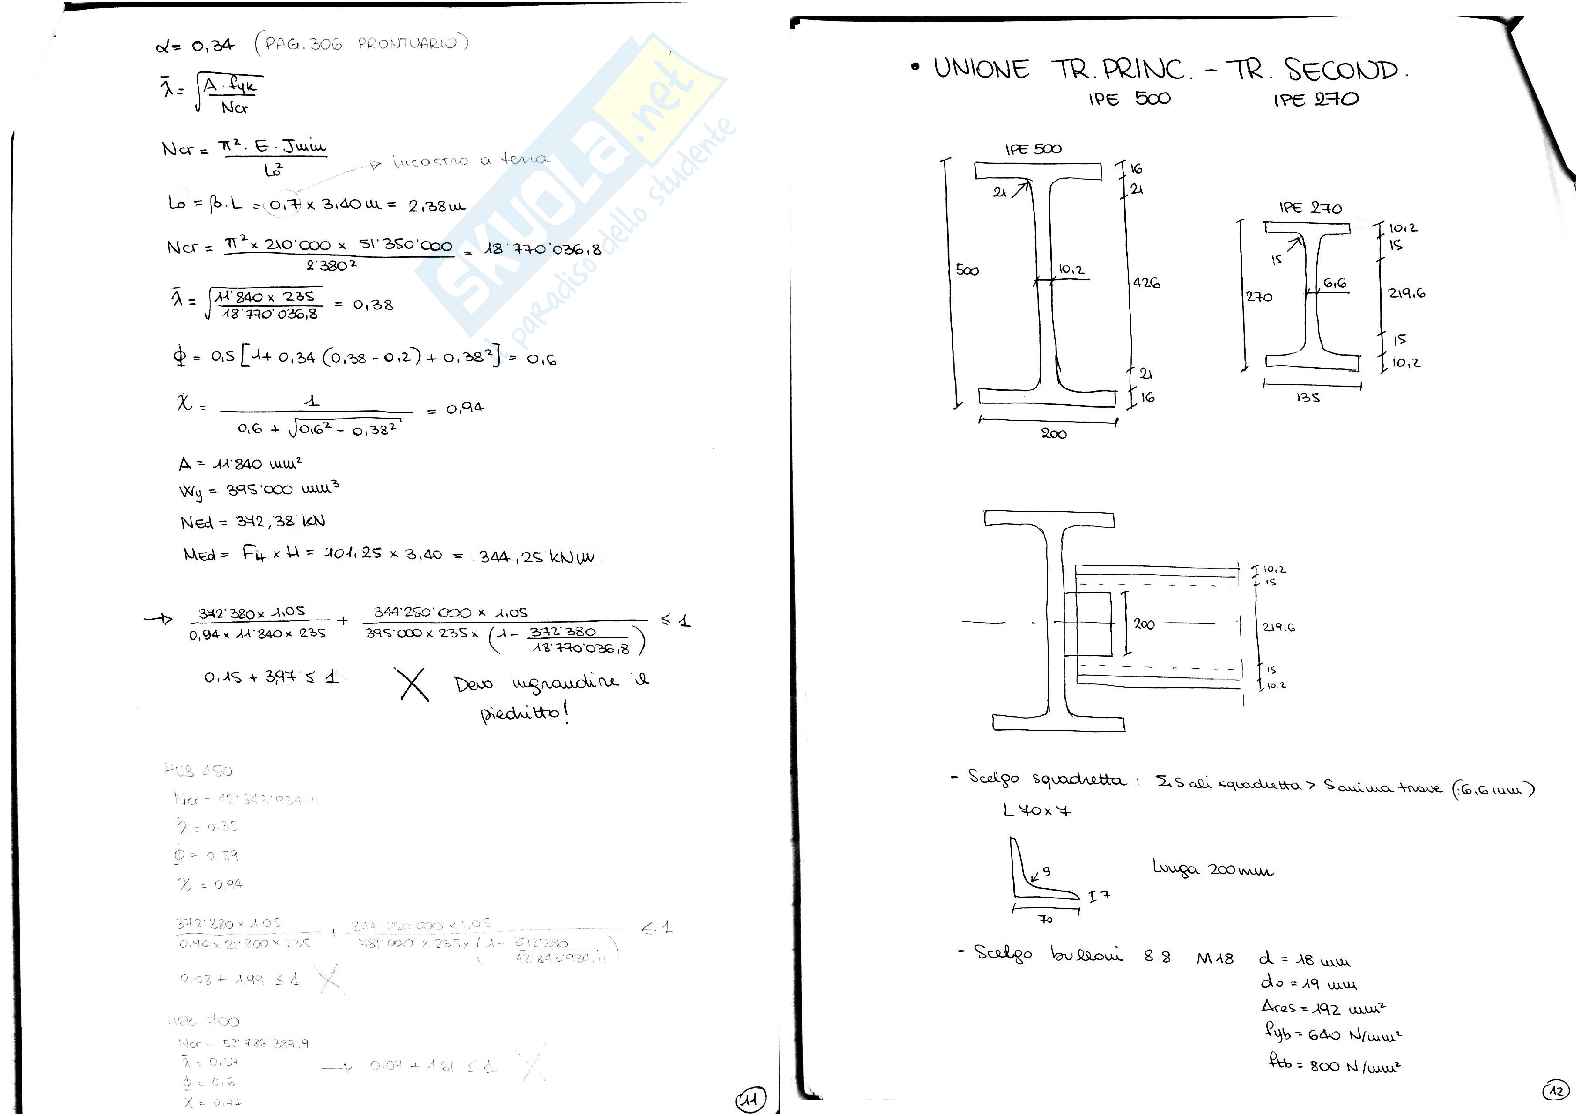 α = 0,34 (PAG. 306 PRONTUARIO)
λ̄ = √(A · fyk / Ncr)
Ncr = π² · E · Jmin / Lo²
→ incastro a terra
Lo = β · L = 0,7 × 3,40 m = 2,38 m
Ncr = π² × 210'000 × 51'350'000 / 2'380² = 18'770'036,8
λ̄ = √(11'840 × 235 / 18'770'036,8) = 0,38
ϕ = 0,5 [1 + 0,34 (0,38 - 0,2) + 0,38²] = 0,6
χ = 1 / (0,6 + √(0,6² - 0,38²)) = 0,94
A = 11'840 mm²
Wy = 395'000 mm³
NEd = 372,38 kN
MEd = FH × H = 101,25 × 3,40 = 344,25 kNm
→ 372'380 × 1,05 / 0,94 × 11'840 × 235 + 344'250'000 × 1,05 / 395'000 × 235 × (1 - 372'380 / 18'770'036,8) ≤ 1
0,15 + 3,97 ≤ 1 X Devo ingrandire il
piedritto!
λ̄ = 0,35
χ = 0,94
372'380 × 1,05
≤ 1
0,08 + 1,99 ≤ 1 X
≤ 1 X
11
SKUOLA.net
il paradiso dello studente
• UNIONE TR. PRINC. - TR. SECOND.
IPE 500 IPE 270
IPE 500
16
21
21
500
10,2
426
21
16
200
IPE 270
10,2
15
15
270
6,6
219,6
15
10,2
135
10,2
15
200
219,6
15
10,2
- Scelgo squadretta : Σs ali squadretta > s anima trave (:6,6 mm)
L 70 × 7
9
7
70
Lunga 200 mm
- Scelgo bulloni 8 8 M18 d = 18 mm
do = 19 mm
Ares = 192 mm²
fyb = 640 N/mm²
ftb = 800 N/mm²
12